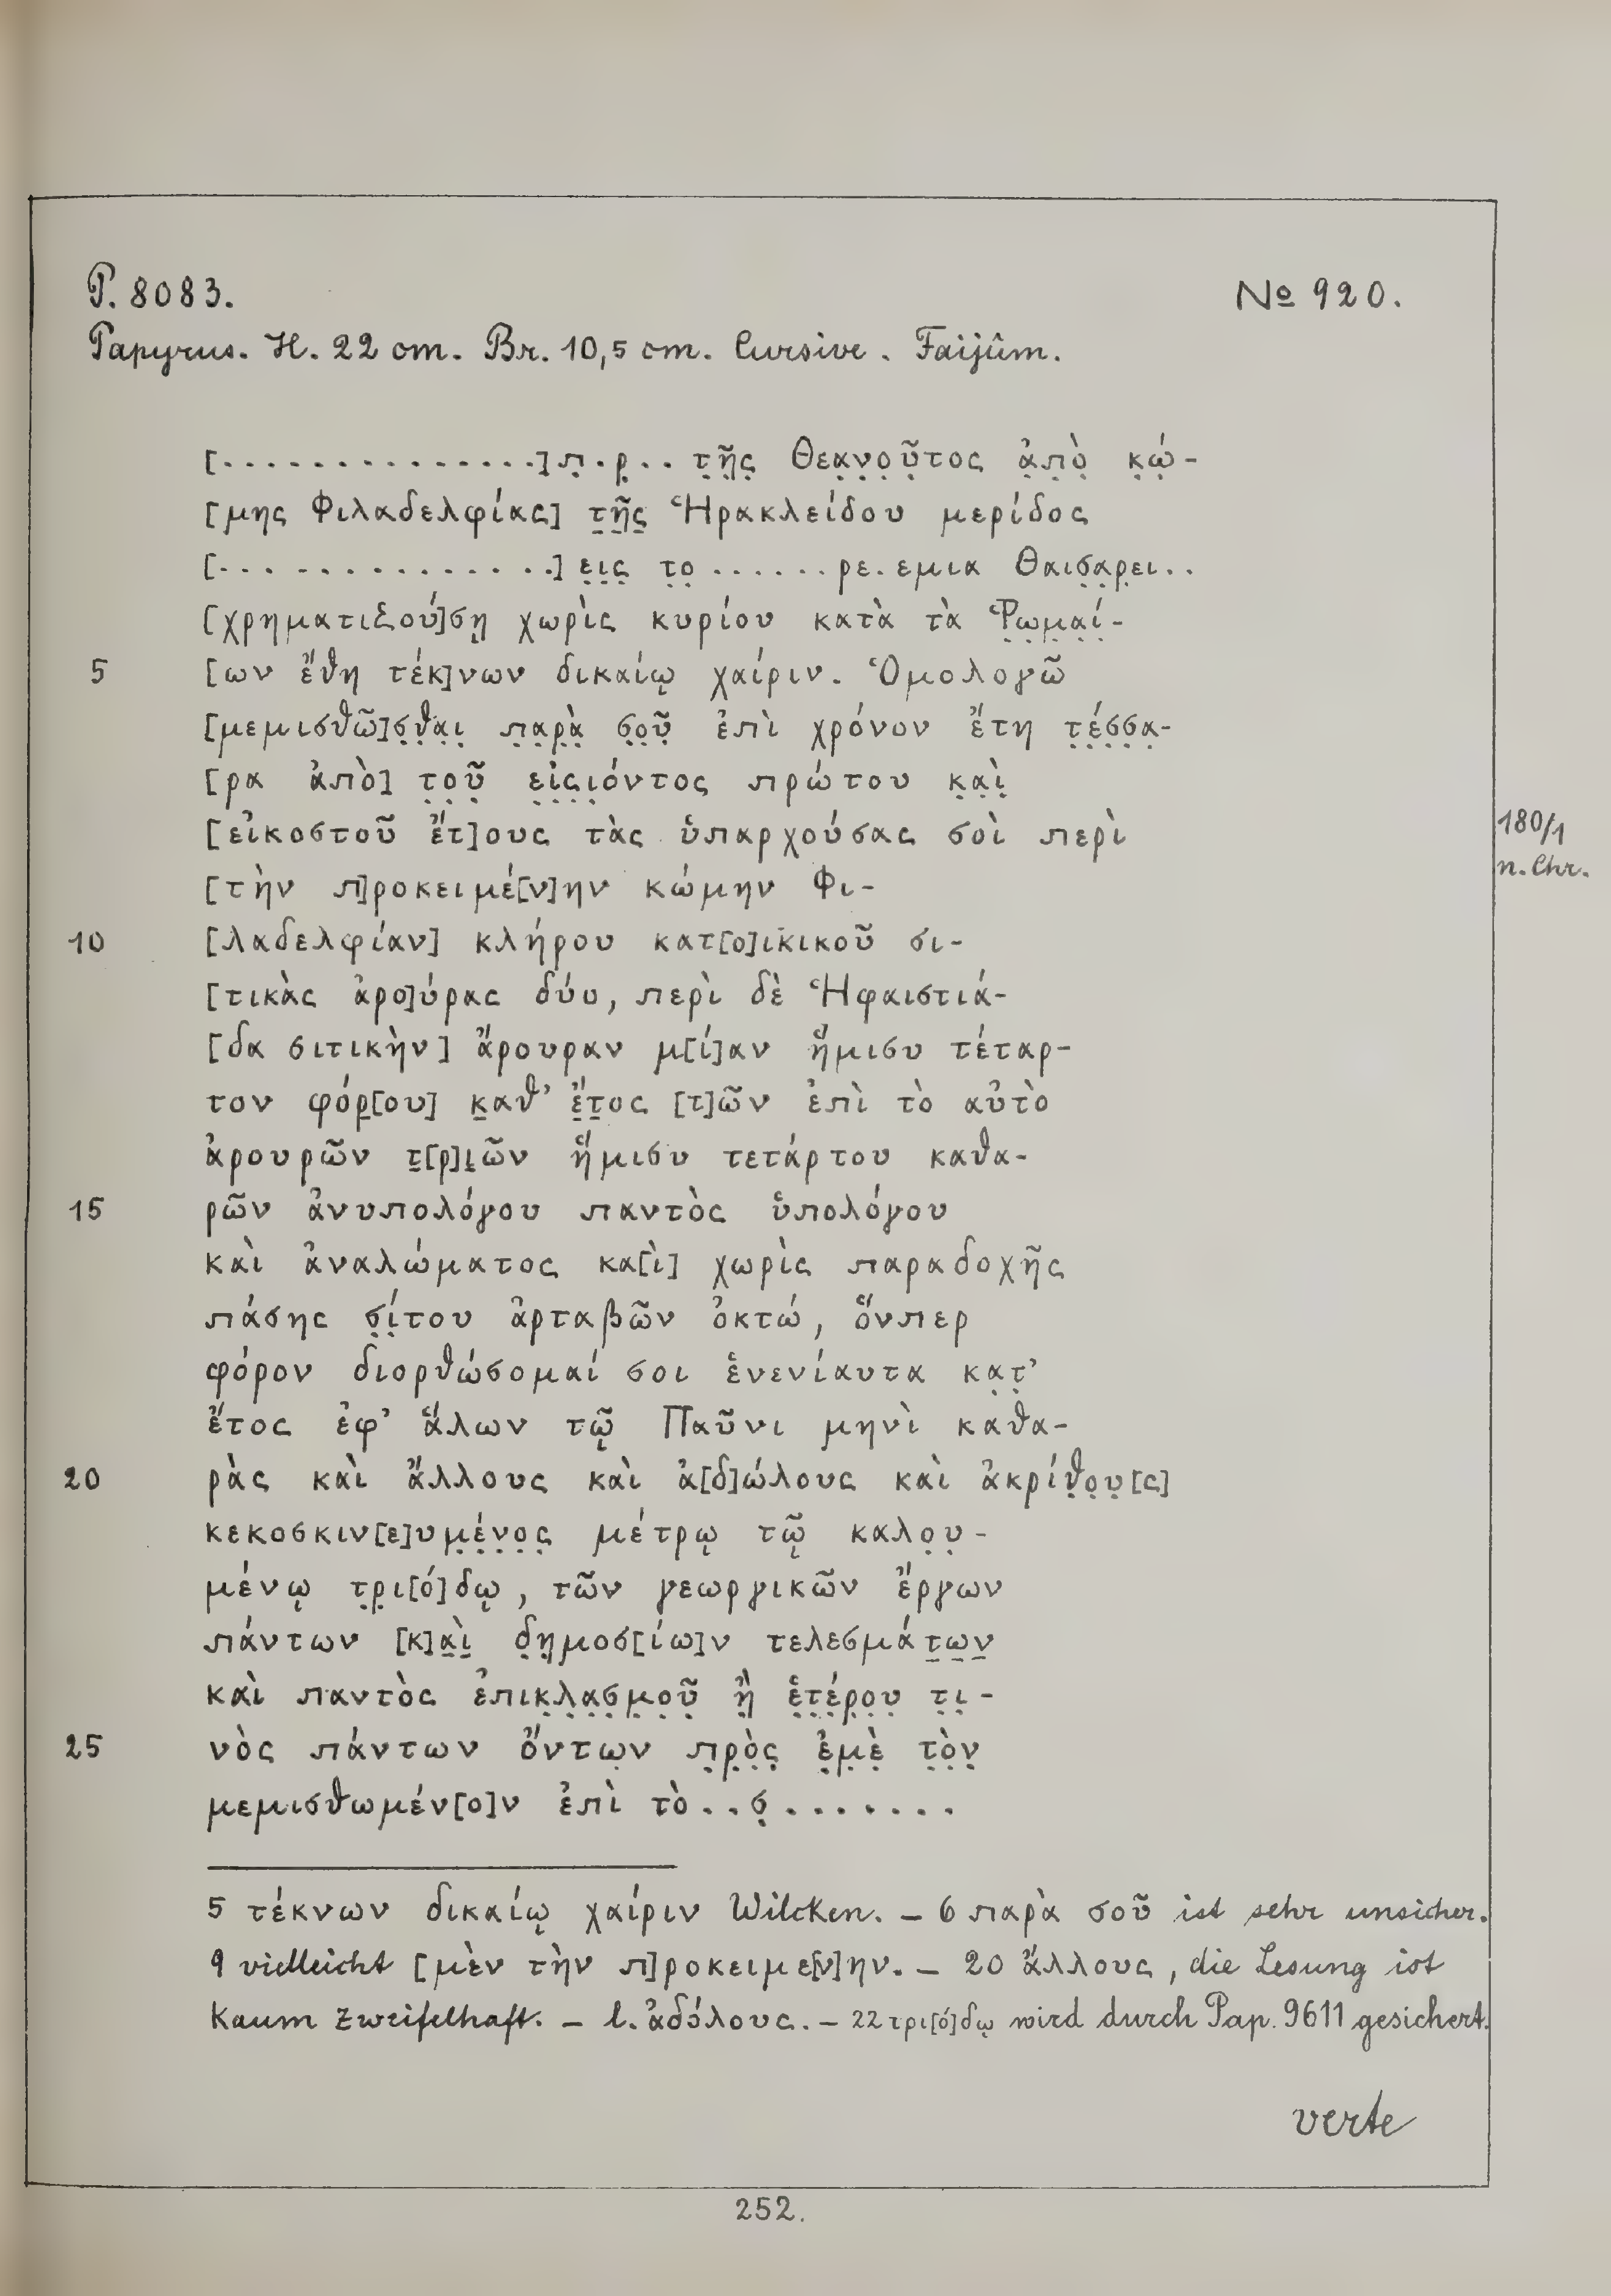 P. 8083. № 920.
Papyrus. H. 22 cm. Br. 10,5 cm. Cursive. Faijûm.
[. . . . . . . . . . . . . . .]π̣.ρ̣.. τ̣ῆ̣ς̣ Θεα̣ν̣ο̣ῦ̣τος ἀ̣π̣ὸ̣ κ̣ώ̣-
[μης Φιλαδελφίας] τ̣ῆ̣ς̣ Ἡρακλείδου μερίδος
[. . . . . . . . . . . . . . .] ε̣ι̣ς̣ τ̣ο̣ ......ρε.εμια Θαισα̣ρ̣ει..
[χρηματιζού]ση̣ χωρὶς κυρίου κατὰ τὰ Ῥ̣ω̣μ̣α̣ί̣-
5 [ων ἔθη τέκ]νων δικαίῳ χαίριν. Ὁμολογῶ
[μεμισθῶ]σ̣θ̣α̣ι̣ π̣α̣ρ̣ὰ̣ σ̣ο̣ῦ̣ ἐπὶ χρόνον ἔτη τ̣έ̣σ̣σ̣α̣-
[ρα ἀπὸ] τ̣ο̣ῦ̣ ε̣ἰ̣ς̣ι̣όντος πρώτου κ̣α̣ὶ̣
[εἰκοστοῦ ἔτ]ους τὰς ὑπαρχούσας σοὶ περὶ 180/1
n. Chr.
[τὴν π]ροκειμέ[ν]ην κώμην Φι-
10 [λαδελφίαν] κλήρου κατ[ο]ικικοῦ σι-
[τικὰς ἀρο]ύρας δύο, περὶ δὲ Ἡφαιστιά-
[δα σιτικὴν] ἄρουραν μ[ί]αν ἥμισυ τέταρ-
τον φόρ̣[ου] κ̣αθ’ ἔ̣τ̣ος [τ]ῶν ἐπὶ τὸ αὐτὸ
ἀρουρῶν τ̣[ρ]ι̣ῶν ἥμισυ τετάρτου καθα-
15 ρῶν ἀνυπολόγου παντὸς ὑπολόγου
καὶ ἀναλώματος κα[ὶ] χωρὶς παραδοχῆς
πάσης σ̣ί̣του ἀρταβῶν ὀκτώ, ὅνπερ
φόρον διορθώσομαί σοι ἑνενίαυτα κα̣τ̣’
ἔτος ἐφ’ ἅλων τῷ Παῦνι μηνὶ καθα-
20 ρὰς καὶ ἄλλους καὶ ἀ[δ]ώλους καὶ ἀκρίθ̣ο̣υ̣[ς]
κεκοσκιν[ε]υμ̣έ̣ν̣ο̣ς̣ μέτρῳ τῷ καλο̣υ̣-
μένῳ τ̣ρ̣ι[ό]δῳ, τῶν γεωργικῶν ἔργων
πάντων [κ]α̣ὶ̣ δ̣η̣μοσ[ίω]ν τελεσμάτ̣ω̣ν̣
καὶ παντὸς ἐπικ̣λ̣α̣σ̣μ̣ο̣ῦ̣ ἢ̣ ἑ̣τ̣έ̣ρ̣ο̣υ̣ τ̣ι̣-
25 νὸς πάντων ὄντω̣ν π̣ρ̣ὸ̣ς̣ ἐ̣μ̣ὲ̣ τ̣ὸ̣ν̣
μεμισθωμέν[ο]ν ἐπὶ τὸ..σ̣........
5 τέκνων δικαίῳ χαίριν Wilcken. – 6 παρὰ σοῦ ist sehr unsicher.
9 vielleicht [μὲν τὴν π]ροκειμε[ν]ην. – 20 ἄλλους, die Lesung ist
kaum zweifelhaft. – l. ἀδόλους. – 22 τρι[ό]δῳ wird durch Pap. 9611 gesichert.
verte
252.